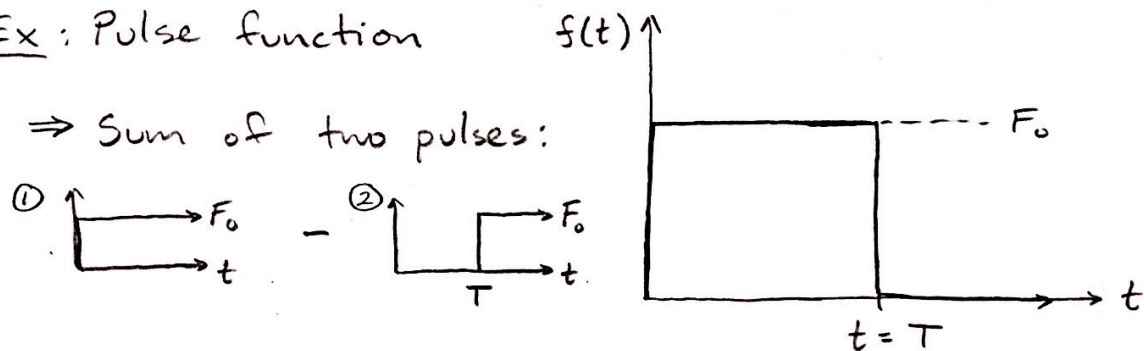 Ex: Pulse function
f(t)
⇒ Sum of two pulses:
F₀
① F₀ - ② F₀
t t
T
t
t = T